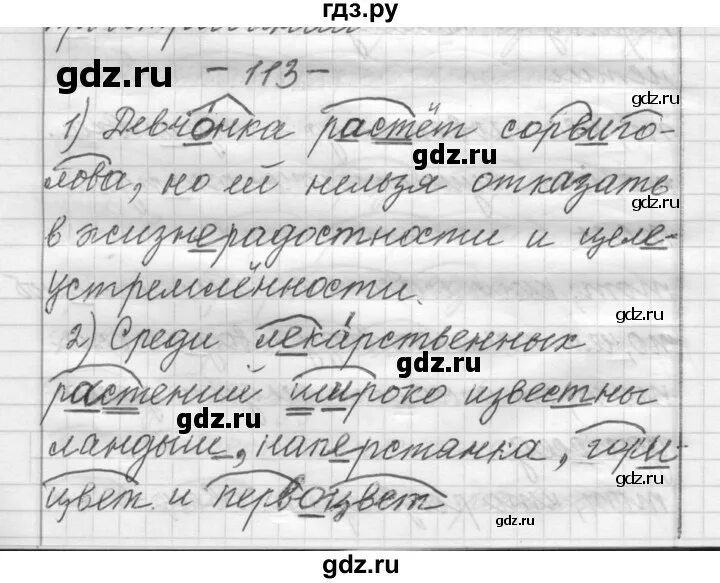 гдз.ру
gdz.ru
- 113 -
gdz.ru
1) Девчонка растёт сорвиго-
gdz.ru
лова, но ей нельзя отказать
gdz.ru
в жизнерадостности и целе-
устремлённости.
gdz.ru
2) Среди лекарственных
gdz.ru
растений широко известны
gdz.ru
ландыш, наперстянка, гори-
gdz.ru
цвет и первоцвет
gdz.ru
gdz.ru